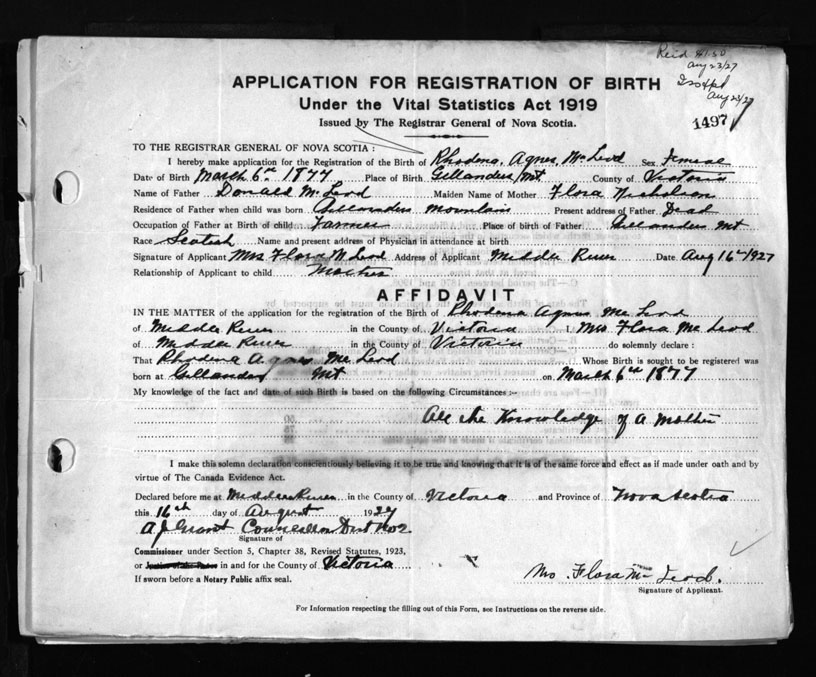 Aug 23/27
Aug 23/27
APPLICATION FOR REGISTRATION OF BIRTH
Under the Vital Statistics Act 1919
Issued by The Registrar General of Nova Scotia.
1497
TO THE REGISTRAR GENERAL OF NOVA SCOTIA:
I hereby make application for the Registration of the Birth of Rhodena Agnes McLeod Sex Female
Date of Birth March 6th 1877 Place of Birth Gillanders Mt County of Victoria
Name of Father Donald McLeod Maiden Name of Mother Flora Nicholson
Residence of Father when child was born Gillanders Mountain Present address of Father Dead
Occupation of Father at Birth of child Farmer Place of birth of Father Gillanders Mt
Race Scotish Name and present address of Physician in attendance at birth
Signature of Applicant Mrs Flora McLeod Address of Applicant Middle River Date Aug 16th 1927
Relationship of Applicant to child Mother
AFFIDAVIT
IN THE MATTER of the application for the registration of the Birth of Rhodena Agnes McLeod
of Middle River in the County of Victoria I, Mrs Flora McLeod
of Middle River in the County of Victoria do solemnly declare:
That Rhodena Agnes McLeod Whose Birth is sought to be registered was
born at Gillanders Mt on March 6th 1877
My knowledge of the fact and date of such Birth is based on the following Circumstances:-
All the Knowledge of a Mother
I make this solemn declaration conscientiously believing it to be true and knowing that it is of the same force and effect as if made under oath and by
virtue of The Canada Evidence Act.
Declared before me at Middle River in the County of Victoria and Province of Nova Scotia
this 16th day of August 1927
A J Grant Councillor Dist No 2
Signature of
Commissioner under Section 5, Chapter 38, Revised Statutes, 1923,
or in and for the County of Victoria
If sworn before a Notary Public affix seal.
Mrs. Flora McLeod.
Signature of Applicant.
For Information respecting the filling out of this Form, see Instructions on the reverse side.